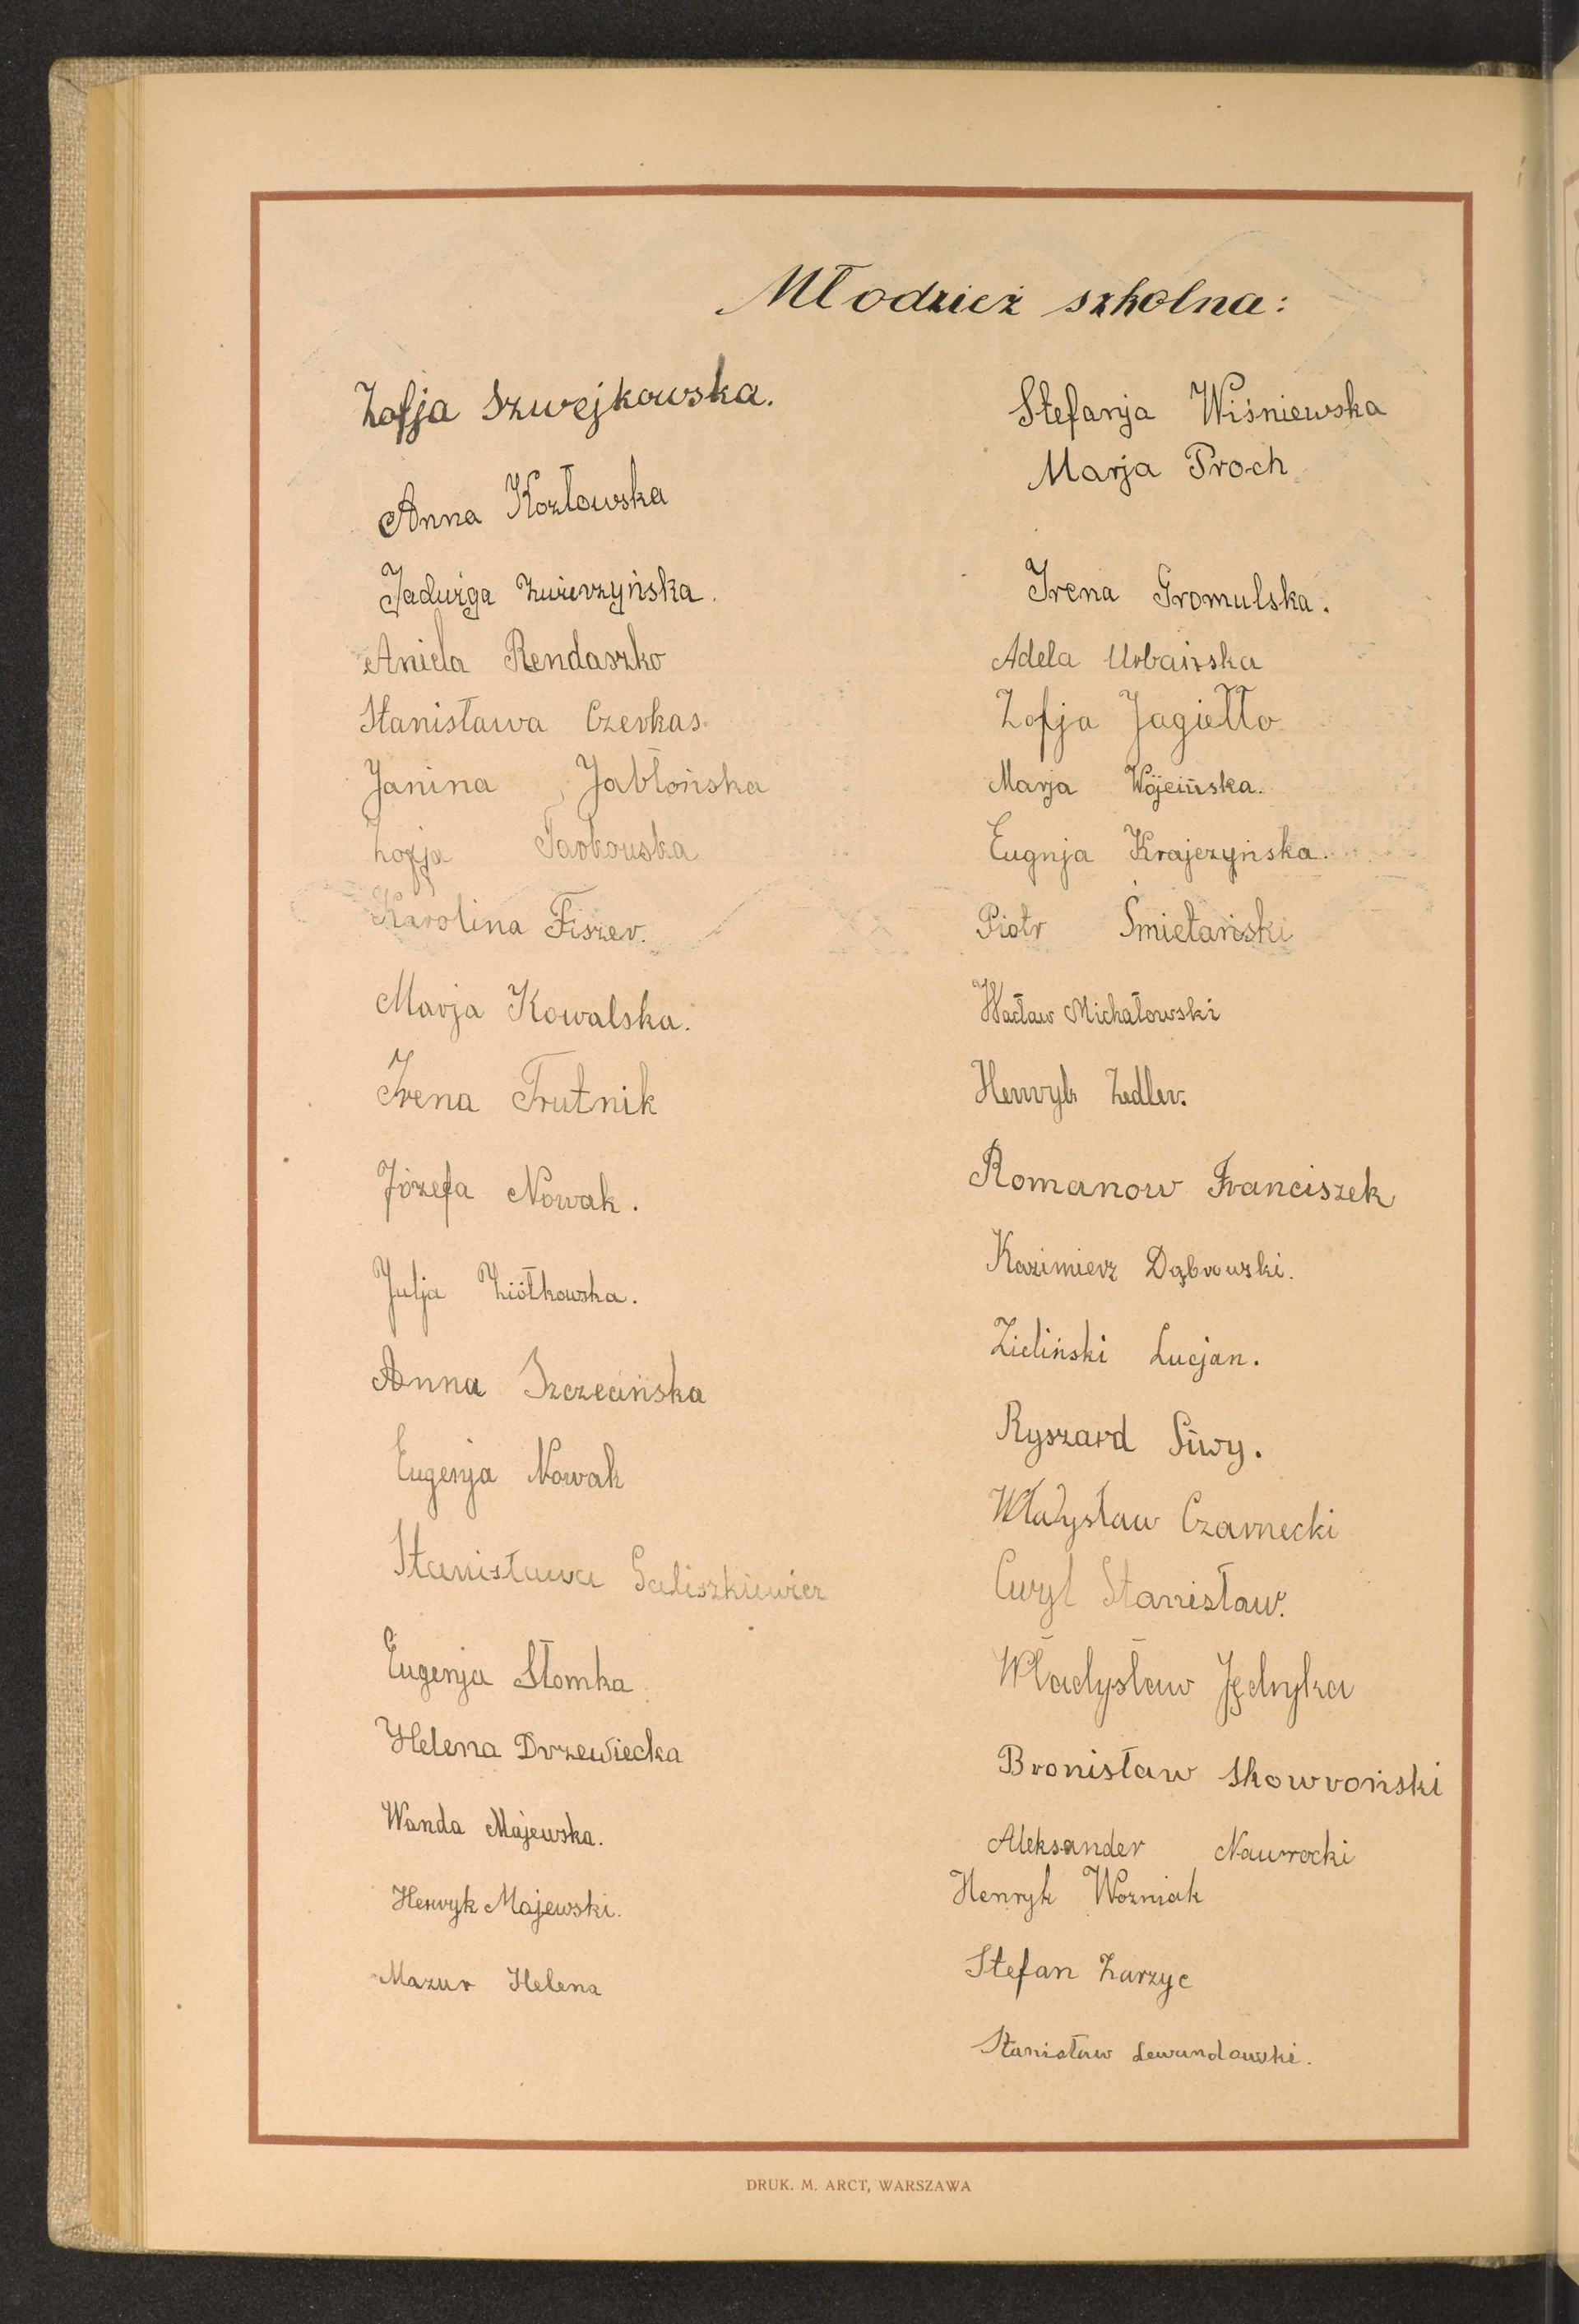 Młodzież szkolna:
Zofja Szwejkowska.
Anna Kozłowska
Jadwiga Zwierzyńska.
Aniela Rendaszko
Stanisława Czerkas.
Janina Jabłońska
Zofja Tarkowska
Karolina Fiszer.
Marja Kowalska.
Irena Trutnik
Józefa Nowak.
Julja Ziółkowska.
Anna Szczecińska
Eugenja Nowak
Stanisława Galiszkiewicz
Eugenja Słomka
Helena Drzewiecka
Wanda Majewska.
Henryk Majewski.
Mazur Helena
Stefanja Wiśniewska
Marja Proch
Irena Gromulska.
Adela Urbańska
Zofja Jagiełło
Marja Wójcińska.
Eugnja Krajczyńska.
Piotr Śmietański
Wacław Michałowski
Henryk Zedler.
Romanow Franciszek
Kazimierz Dąbrowski.
Zieliński Lucjan.
Ryszard Siwy.
Władysław Czarnecki
Cwyl Stanisław.
Władysław Jędryka
Bronisław Skowroński
Aleksander Nawrocki
Henryk Wozniak
Stefan Zarzyc
Stanisław Lewandowski.
DRUK. M. ARCT, WARSZAWA